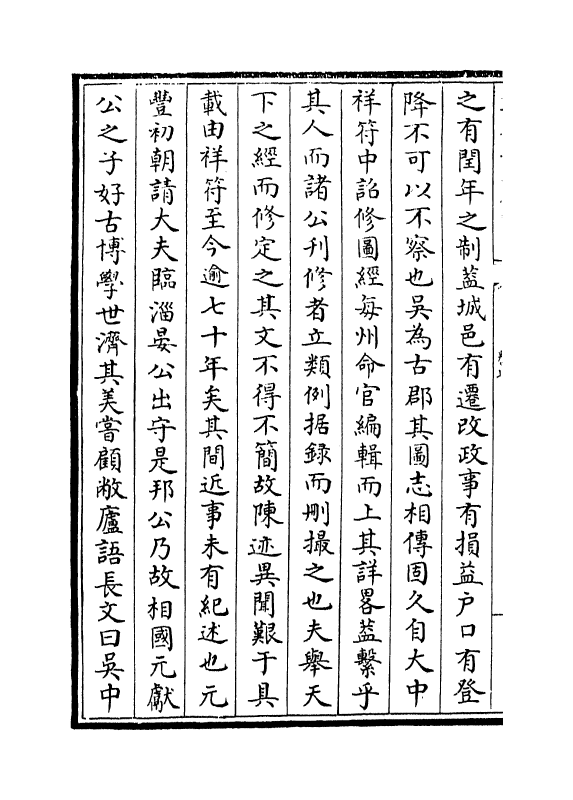 之有閏年之制蓋城邑有遷改政事有損益户口有登
降不可以不察也吴為古郡其圖志相傳固久自大中
祥符中詔修圖經每州命官編輯而上其詳畧蓋繫乎
其人而諸公刋修者立類例据録而刪撮之也夫舉天
下之經而修定之其文不得不簡故陳迹異聞艱于具
載由祥符至今逾七十年矣其間近事未有紀述也元
豐初朝請大夫臨淄晏公出守是邦公乃故相國元獻
公之子好古博學世濟其美嘗顧敝廬語長文曰吴中